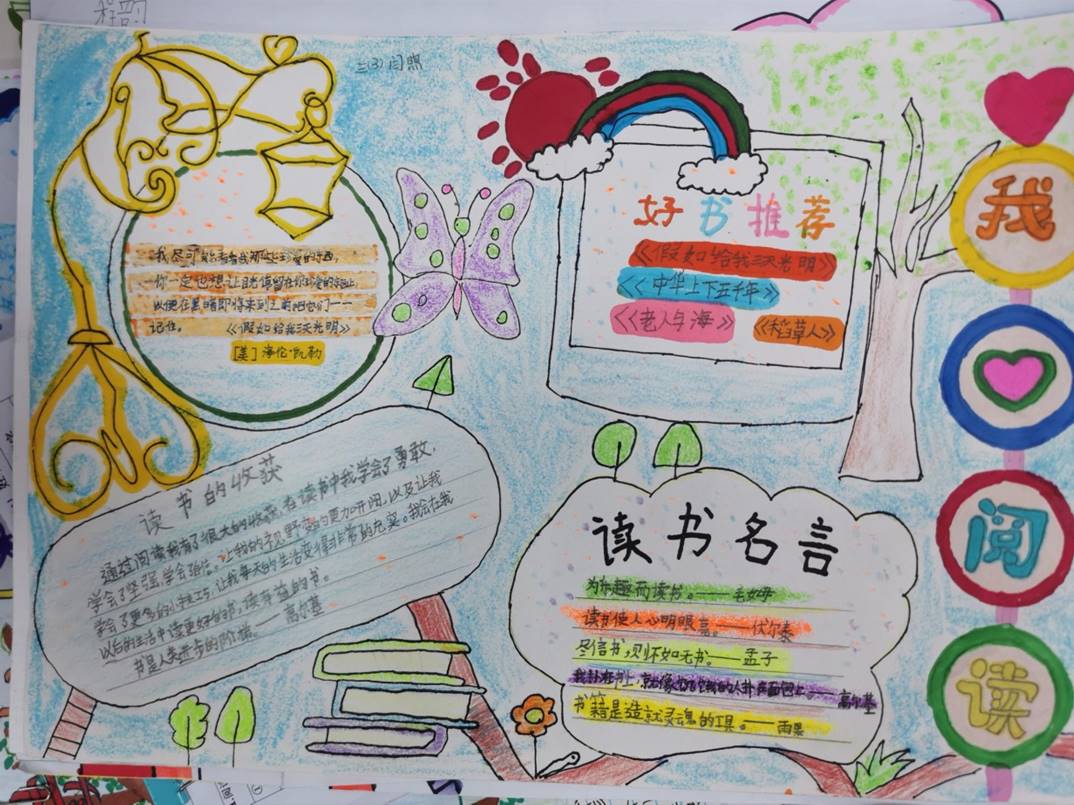 程韵
三(3) 闫煦
我尽可能
你一定也想让目光停留在你
以便在黑暗即将来到之前把它们一一
记住。 《假如给我三天光明》
[美] 海伦·凯勒
好书推荐
《假如给我三天光明》
《中华上下五千年》
《老人与海》 《稻草人》
我
阅
读
读书的收获
通过阅读我有了很大的收获,在读书中我学会了勇敢,
学会了坚强,学会了自信。让我的视野变的更加开阔,以及让我
学会了更多的小技巧,让我每天的生活变得非常的充实。我会在我
以后的生活中读更好的书,读有益的书。
书是人类进步的阶梯。——高尔基
读书名言
为乐趣而读书。——毛姆
读书使人心明眼亮。——伏尔泰
尽信书,则不如无书。——孟子
我扑在书上,就像饥饿的人扑在面包上。——高尔基
书籍是造就灵魂的工具。——雨果